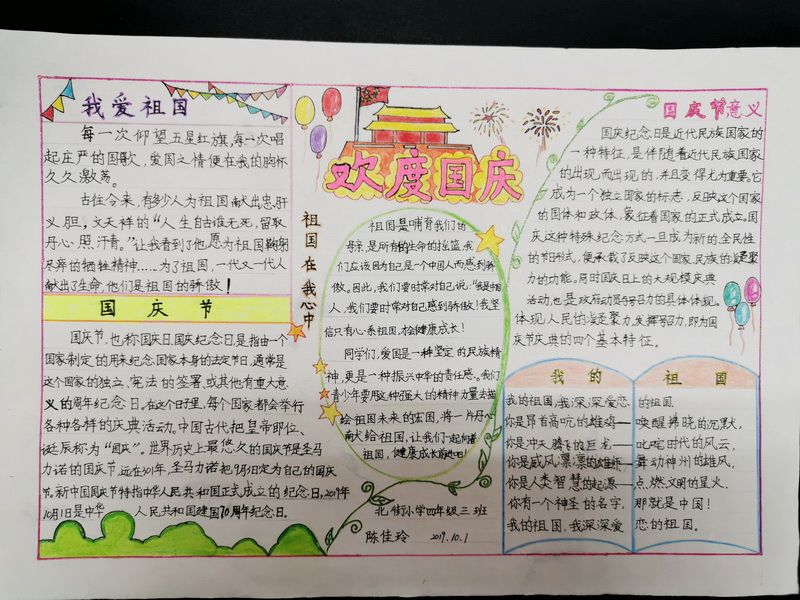 我爱祖国
每一次仰望五星红旗,每一次唱
起庄严的国歌,爱国之情便在我的胸怀
久久激荡。
古往今来,有多少人为祖国献出忠肝
义胆,文天祥的“人生自古谁无死,留取
丹心照汗青。”让我看到了他愿为祖国鞠躬
尽瘁的牺牲精神……为了祖国,一代又一代人
献出了生命,他们是祖国的骄傲!
国庆节
国庆节,也称国日,国庆纪念日,是指由一个
国家制定的用来纪念国家本身的法定节日,通常是
这个国家的独立、宪法的签署或其他有重大意
义的周年纪念日。在这个日子里,每个国家都会举行
各种各样的庆典活动。中国古代把皇帝即位、
诞辰称为“国庆”。世界历史上最悠久的国庆节是圣马
力诺的国庆节,远在301年,圣马力诺把9月3日定为自己的国庆
节。新中国国庆节特指中华人民共和国正式成立的纪念日,2019年
10月1日是中华人民共和国建国70周年纪念日。
欢度国庆
祖国在我心中
祖国是哺育我们的
母亲,是所有的生命的摇篮,我
们应该因为自己是一个中国人而感到骄
傲。因此,我们要时常对自己说:“我是中国
人,我们要时常对自己感到骄傲!我坚
信只有心系祖国,才会健康成长!
同学们,爱国是一种坚定的民族精
神,更是一种振兴中华的责任感。我们
青少年要用这种强大的精神力量去描
绘祖国未来的宏图,将一片丹心
献给祖国,让我们一起向着
祖国,健康成长前进吧!
北街小学四年级三班
陈佳玲 2019.10.1
国庆节意义
国庆纪念日是近代民族国家的
一种特征,是伴随着近代民族国家
的出现而出现的,并且变得尤为重要。它
成为一个独立国家的标志,反映这个国家
的国体和政体,象征着国家的正式成立。国
庆这种特殊纪念方式一旦成为新的全民性
的节日形式,便承载了反映这个国家、民族的凝聚
力的功能。同时国庆日上的大规模庆典
活动,也是政府动员与号召力的具体体现。
体现人民的凝聚力,发挥号召力,即为国
庆节庆典的四个基本特征。
我的祖国
我的祖国,我深深爱恋的祖国。
你是昂首高吭的雄鸡——唤醒拂晓的沉默,
你是冲天腾飞的巨龙——叱咤时代的风云,
你是威风凛凛的雄狮——舞动神州的雄风,
你是人类智慧的起源——点燃文明的星火。
你有一个神圣的名字,那就是中国!
我的祖国,我深深爱恋的祖国。